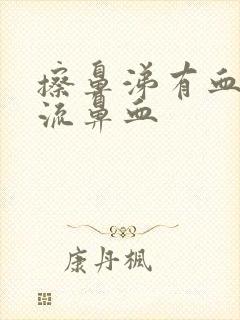 擦鼻涕有血
流鼻血
康丹枫